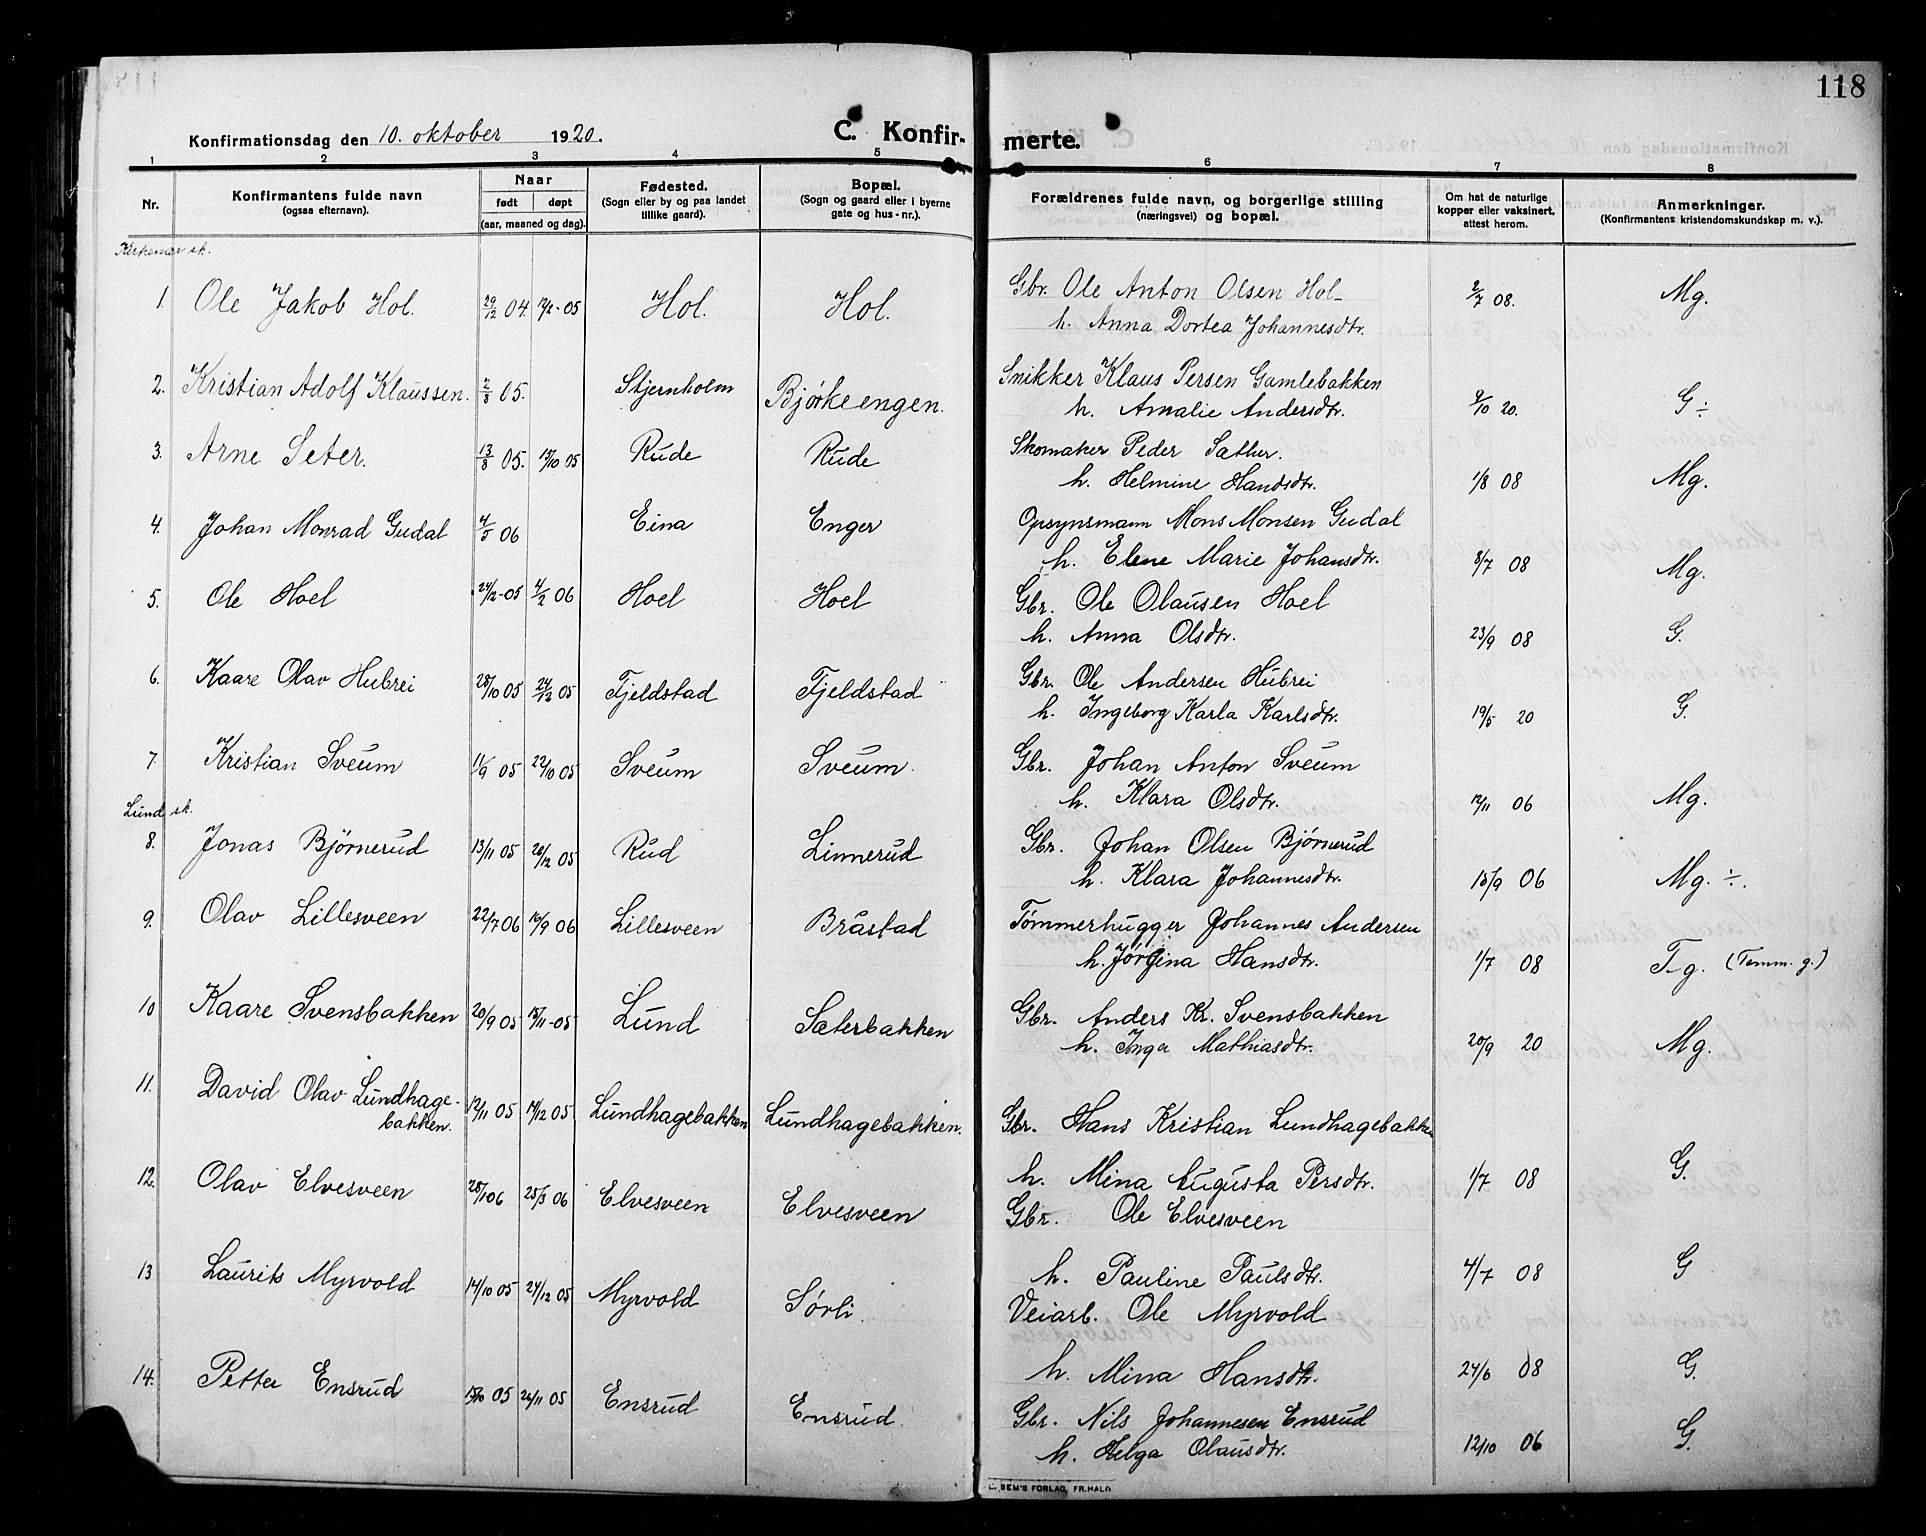 118
Konfirmationsdag den 10. oktober 1920.
C. Konfirmerte.
1 2 3 4 5 6 7 8
Nr.
Konfirmantens fulde navn
(ogsaa efternavn).
Naar
født døpt
(aar, maaned og dag).
Fødested.
(Sogn eller by og paa landet
tillike gaard).
Bopæl.
(Sogn og gaard eller i byerne
gate og hus-nr.).
Forældrenes fulde navn, og borgerlige stilling
(næringsvei) og bopæl.
Om hat de naturlige
kopper eller vaksinert,
attest herom.
Anmerkninger.
(Konfirmantens kristendomskundskap m. v.).
sk.
1. Ole Jakob Hol. 29/12 04. 12/2-05 Hol. Hol. Gbr. Ole Anton Olsen Hol 2/7 08. Mg.
h. Anna Dortea Johannesdtr.
2. Kristian Adolf Klaussen. 2/8 05. Stjernholm Bjørkeengen. Snikker Klaus Persen Gamlebakken
h. Amalie Andersdtr. 9/10 20. G ÷
3. Arne Seter. 13/8 05. 15/10 05 Rude Rude Skomaker Peder Sæther.
h. Helmine Hansdtr. 1/8 08 Mg.
4. Johan Monrad Gudal 4/5 06 Eina Enger Opsynsmann Mons Monsen Gudal
h. Elene Marie Johansdtr. 8/7 08 Mg.
5. Ole Hoel 24/12-05 4/2 06 Hoel Hoel Gbr. Ole Olausen Hoel
h. Anna Olsdtr. 23/9 08 G.
6. Kaare Olav Hubrei 28/10 05 24/12 05 Fjeldstad Fjeldstad Gbr. Ole Andersen Hubrei
h. Ingeborg Karla Karlsdtr. 19/5 20 G.
7. Kristian Sveum 11/9 05 22/10 05 Sveum Sveum. Gbr. Johan Anton Sveum
h. Klara Olsdtr. 12/11 06 Mg.
Lund sk.
8. Jonas Bjørnerud 13/11 05 26/12 05 Rud Linnerud Gbr. Johan Olsen Bjørnerud
h. Klara Johannesdtr. 15/9 06 Mg. ÷.
9. Olav Lillesveen 22/7 06 16/9 06 Lillesveen Bråstad Tømmerhugger Johannes Andersen
h. Jørgina Hansdtr. 1/7 08 T-g. (Temm. g.)
10 Kaare Svensbakken 20/9 05 15/11-05 Lund Sæterbakken Gbr. Anders Kr. Svensbakken
h. Inga Mathiasdtr. 20/9 20 Mg.
11. David Olav Lundhage-
bakken. 12/11 05 17/12 05 Lundhagebakken Lundhagebakken. Gbr. Hans Kristian Lundhagebakken
h. Mina Augusta Persdtr. 1/7 08 G.
12. Olav Elvesveen 28/1 06 25/3 06 Elvesveen Elvesveen Gbr. Ole Elvesveen
h. Pauline Paulsdtr. 4/7 08 G
13 Laurits Myrvold 14/10 05 24/12 05 Myrvold Sørli. Veiarb. Ole Myrvold
h. Mina Hansdtr. 24/6 08 G.
14. Petter Ensrud 15/10 05 26/11 05 Ensrud Ensrud. Gbr. Nils Johannesen Ensrud
h. Helga Olausdtr. 12/10 06 G.
SEM'S FORLAG, FR.HALD